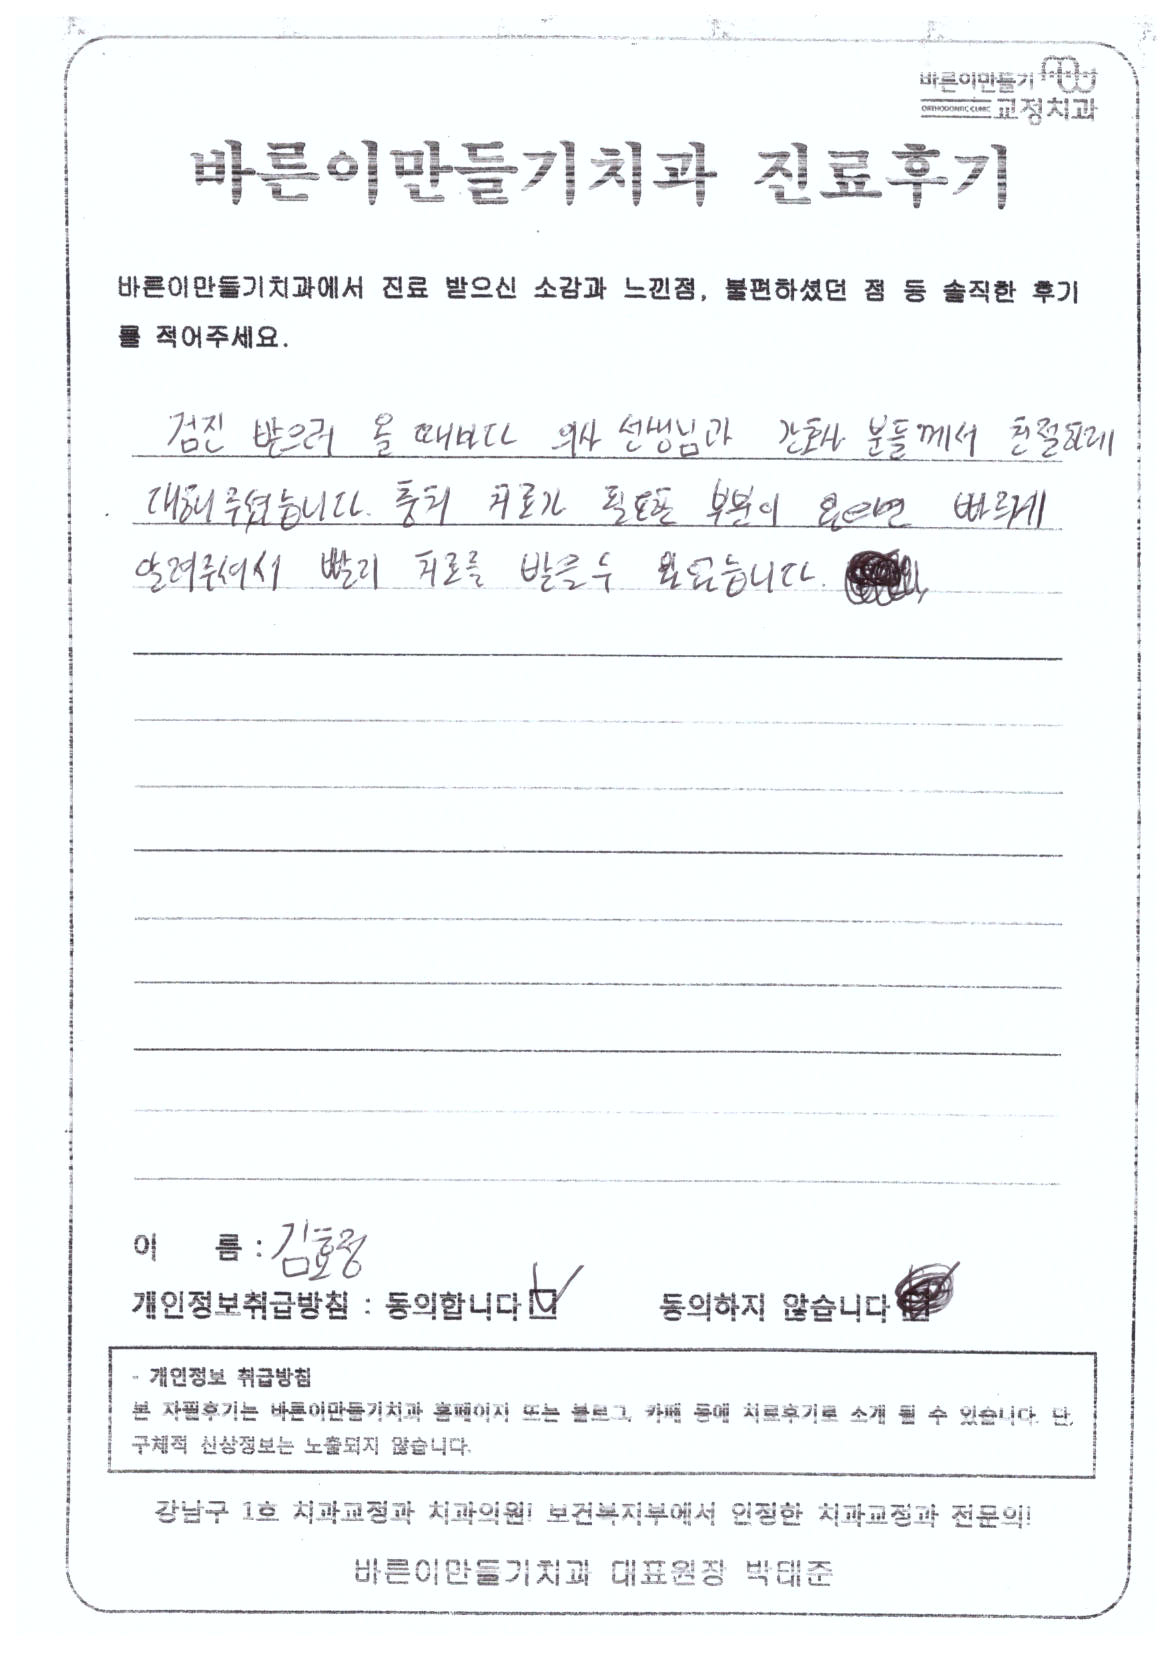 바른이만들기
ORTHODONTIC CLINIC 교정치과
바른이만들기치과 진료후기
바른이만들기치과에서 진료 받으신 소감과 느낀점, 불편하셨던 점 등 솔직한 후기
를 적어주세요.
검진 받으러 올 때마다 의사 선생님과 간호사 분들께서 친절하게
대해주셨습니다. 충치 치료가 필요한 부분이 있다면 빠르게
알려주셔서 빨리 치료를 받을 수 있었습니다.
이 름 : 김효령
개인정보취급방침 : 동의합니다 동의하지 않습니다
- 개인정보 취급방침
본 자필후기는 바른이만들기치과 홈페이지 또는 블로그, 카페 등에 치료후기로 소개 될 수 있습니다. 단,
구체적 신상정보는 노출되지 않습니다.
강남구 1호 치과교정과 치과의원! 보건복지부에서 인정한 치과교정과 전문의!
바른이만들기치과 대표원장 박태준